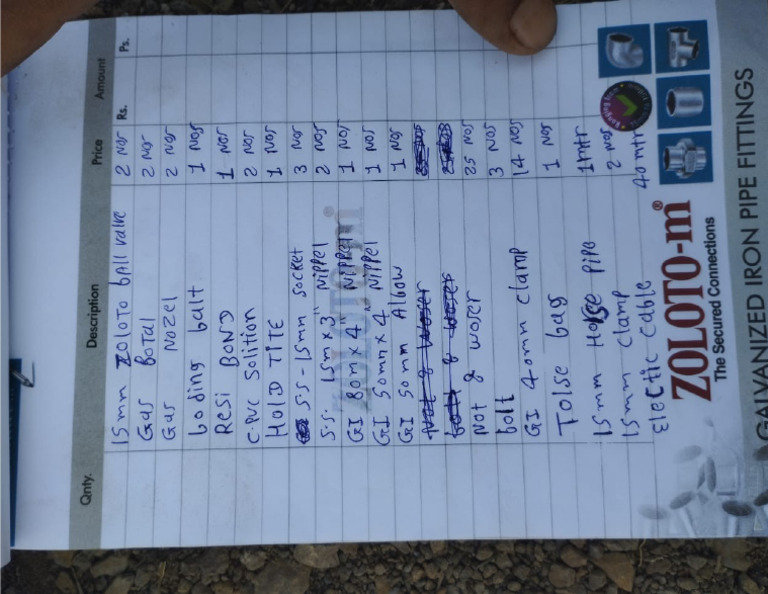 Qnty. Description Price Amount
Rs. Ps.
15mm Zoloto ball valve 2 Nos
Gas Botal 2 Nos
Gas Nozel 2 Nos
boding balt 1 Nos
Resi BOND 1 Nos
C-PVC Solition 2 Nos
HOLD TITE 1 Nos
S.S-15mm socket 3 Nos
S.S. 15m x 3" Nippel 2 Nos
GI 80m x 4" Nippel 1 Nos
GI 50mn x 4" Nippel 1 Nos
GI 50mm Albow 1 Nos
Not & Woser
bolt & woser
Not & woser 25 Nos
bolt 3 Nos
GI 40mn clamp 14 Nos
Tolse bag 1 Nos
15mm Hose Pipe 1 mtr
15mm clamp 2 Nos
Electic Cable 40 mtr
ZOLOTO-m®
The Secured Connections
GALVANIZED IRON PIPE FITTINGS